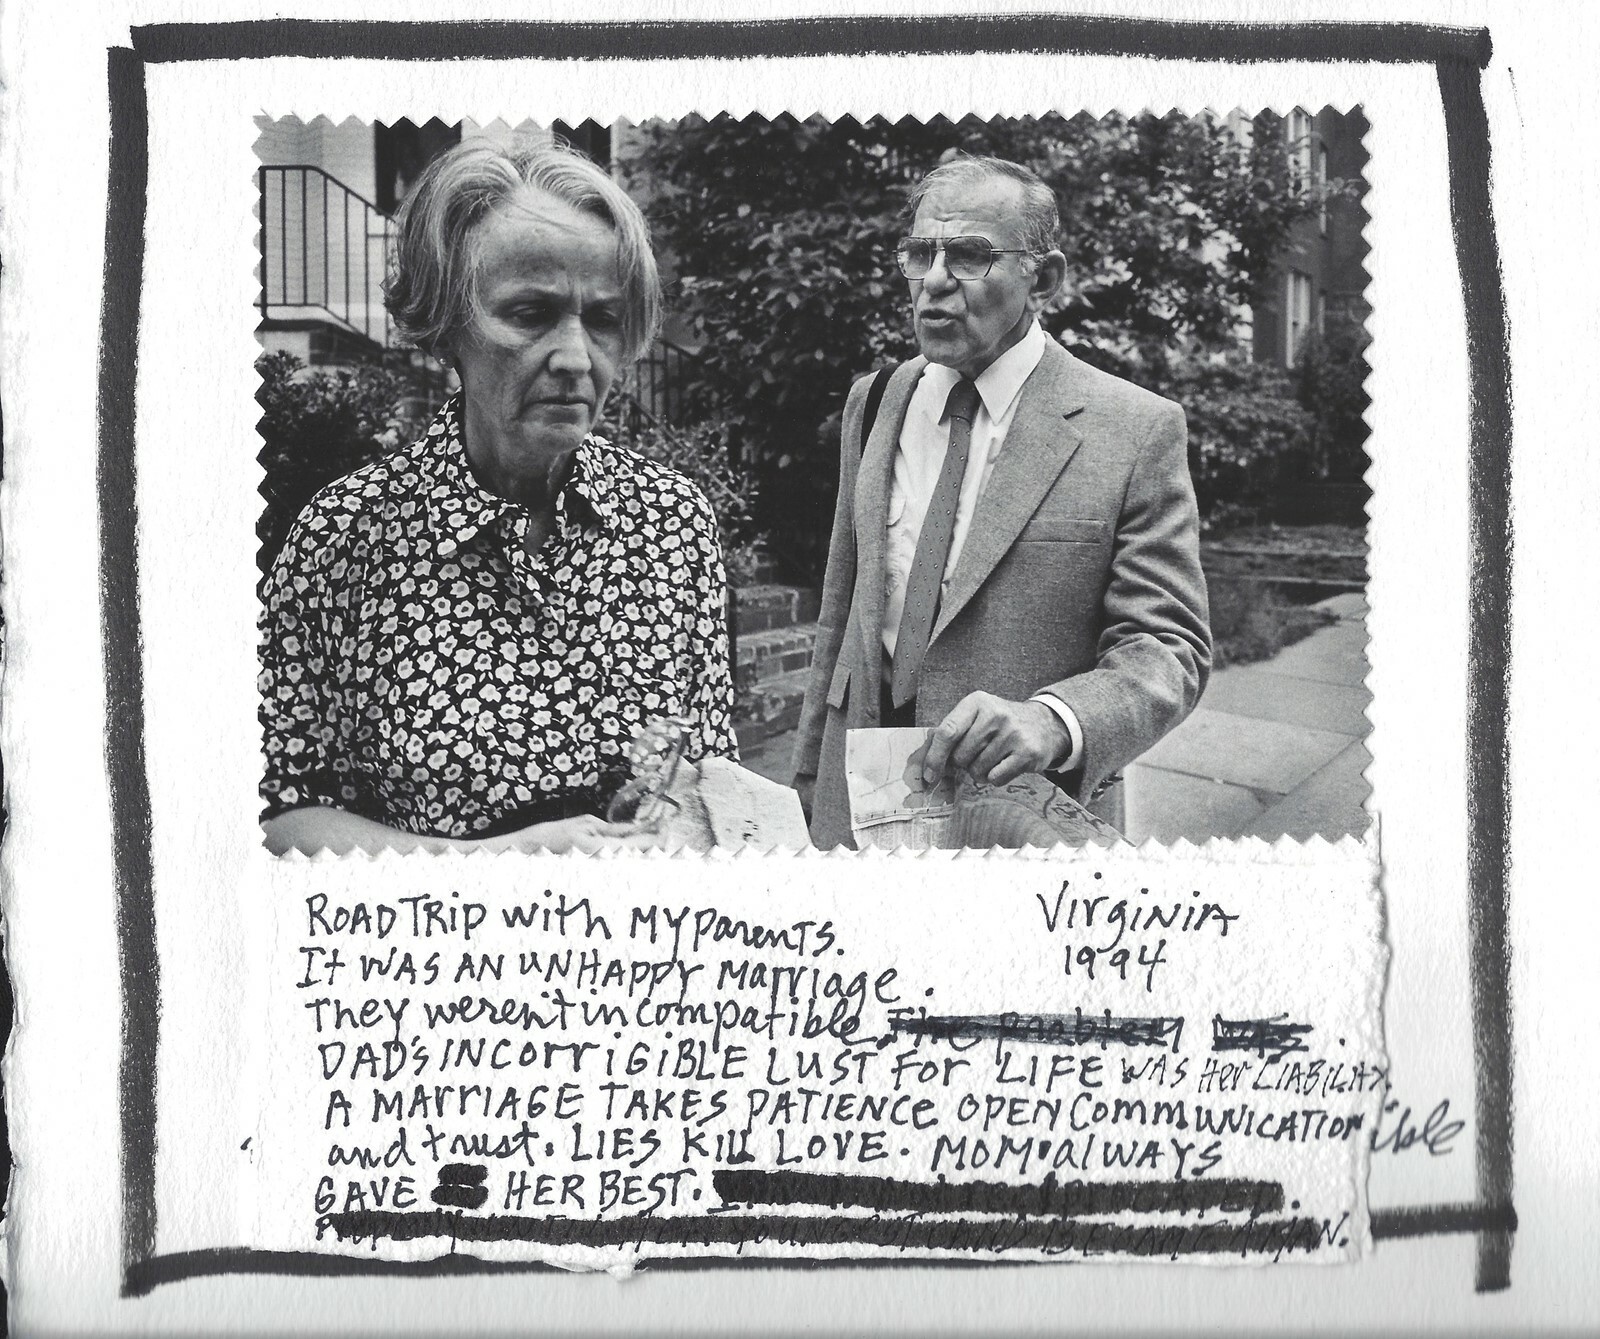 ROAD TRIP with MY parents.
Virginia
1994
It WAS AN UNHAPPY Marriage.
They weren't incompatible.
DAD'S INCORRIGIBLE LUST FOR LIFE WAS Her LIABILITY.
A MARRIAGE TAKES PATIENCE OPEN COMMUNICATION
and trust. LIES KILL LOVE. MOM always
GAVE HER BEST.
ible